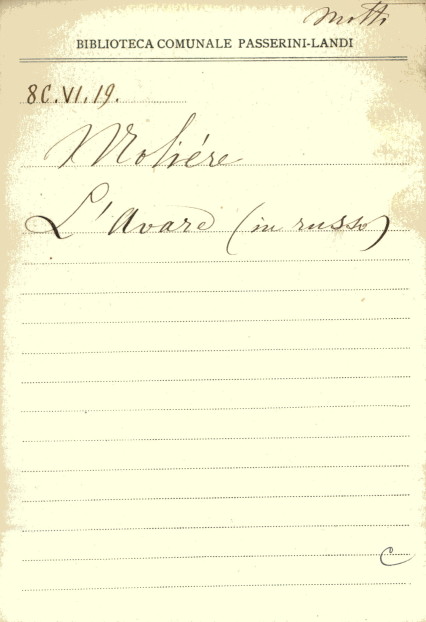 Motti
BIBLIOTECA COMUNALE PASSERINI-LANDI
8C.VI.19.
Moliére
L'Avare (in russo)
C